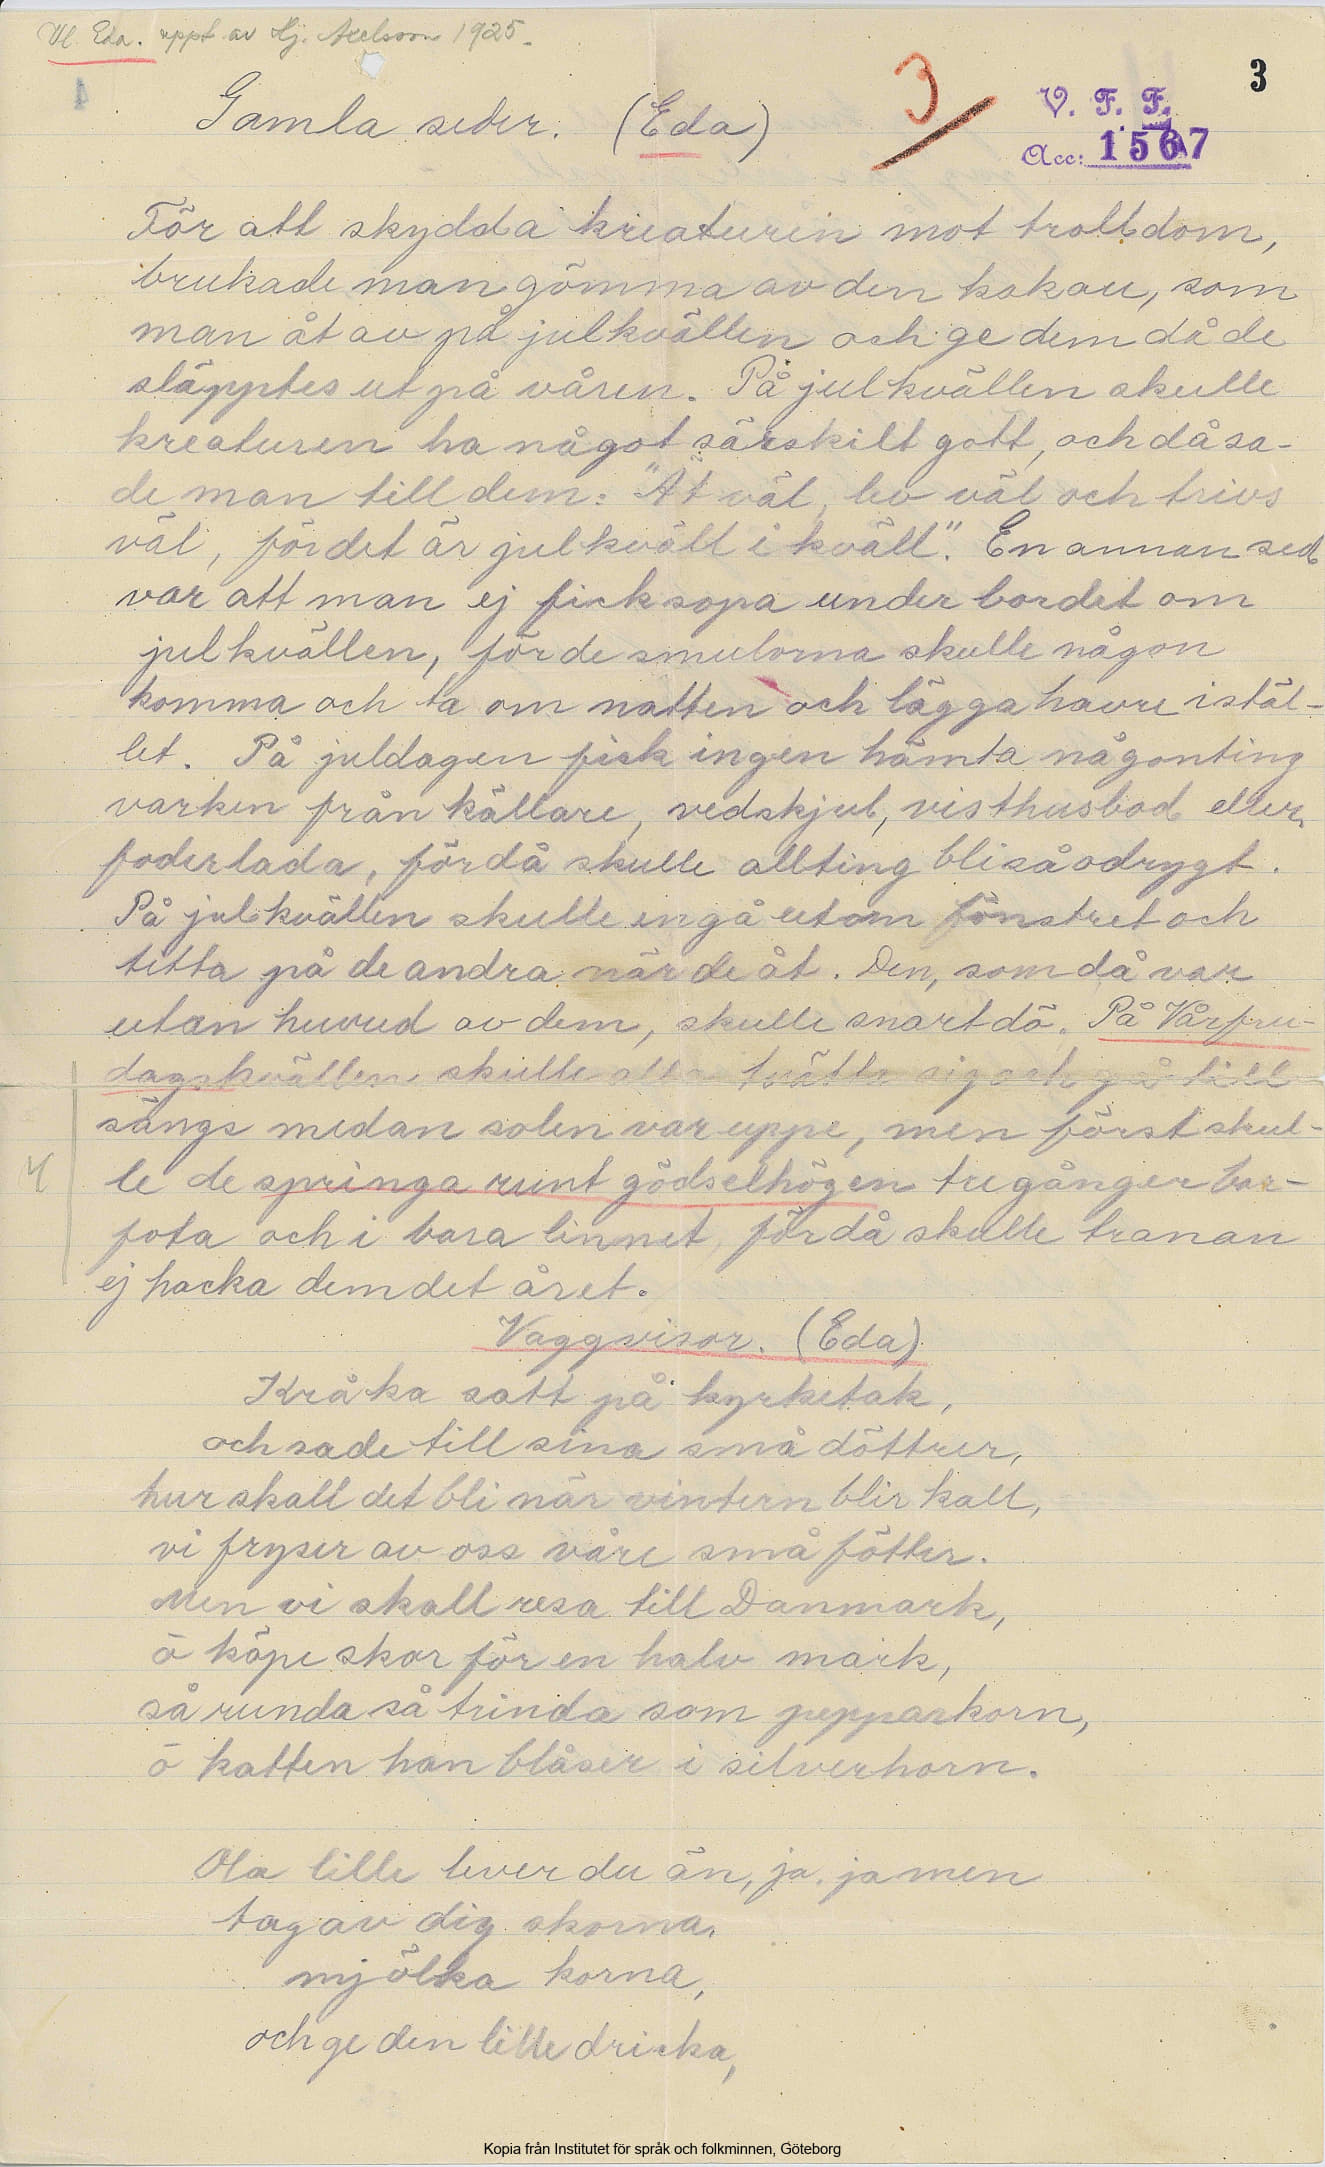 Vl. Eda. uppt. av Hj. Axelsson 1925.
3
3
V. F. F.
Acc: 1567
Gamla seder. (Eda)
För att skydda kreaturen mot trolldom,
brukade man gömma av den kakan, som
man åt av på julkvällen och ge dem då de
släpptes ut på våren. På julkvällen skulle
kreaturen ha något särskilt gott, och då sa-
de man till dem: "Ät väl, lev väl och trivs
väl, för det är julkväll i kväll". En annan sed
var att man ej fick sopa under bordet om
julkvällen, för de smulorna skulle någon
komma och ta om natten och lägga havre istäl-
let. På juldagen fick ingen hämta någonting
varken från källare, vedskjul, visthusbod eller
foderlada, för då skulle allting bli så odrygt.
På julkvällen skulle en gå utom fönstret och
titta på de andra när de åt. Den, som då var
utan huvud av dem, skulle snart dö. På Vårfru-
dagskvällen skulle alla tvätta sig och gå till
sängs medan solen var uppe, men först skul-
le de springa runt gödselhögen tre gånger bar-
fota och i bara linnet, för då skulle tranan
ej hacka dem det året.
Vaggvisor. (Eda)
Kråka satt på kyrketak,
och sade till sina små döttrer,
hur skall det bli när vintern blir kall,
vi fryser av oss våre små fötter.
Men vi skall resa till Danmark,
ö köpe skor för en halv mark,
så runda så trinda som pepparkorn,
ö katten han blåser i silverhorn.
Ola lille lever du än, ja, ja men
tag av dig skorna,
mjölka korna,
och ge den lille dricka,
Kopia från Institutet för språk och folkminnen, Göteborg